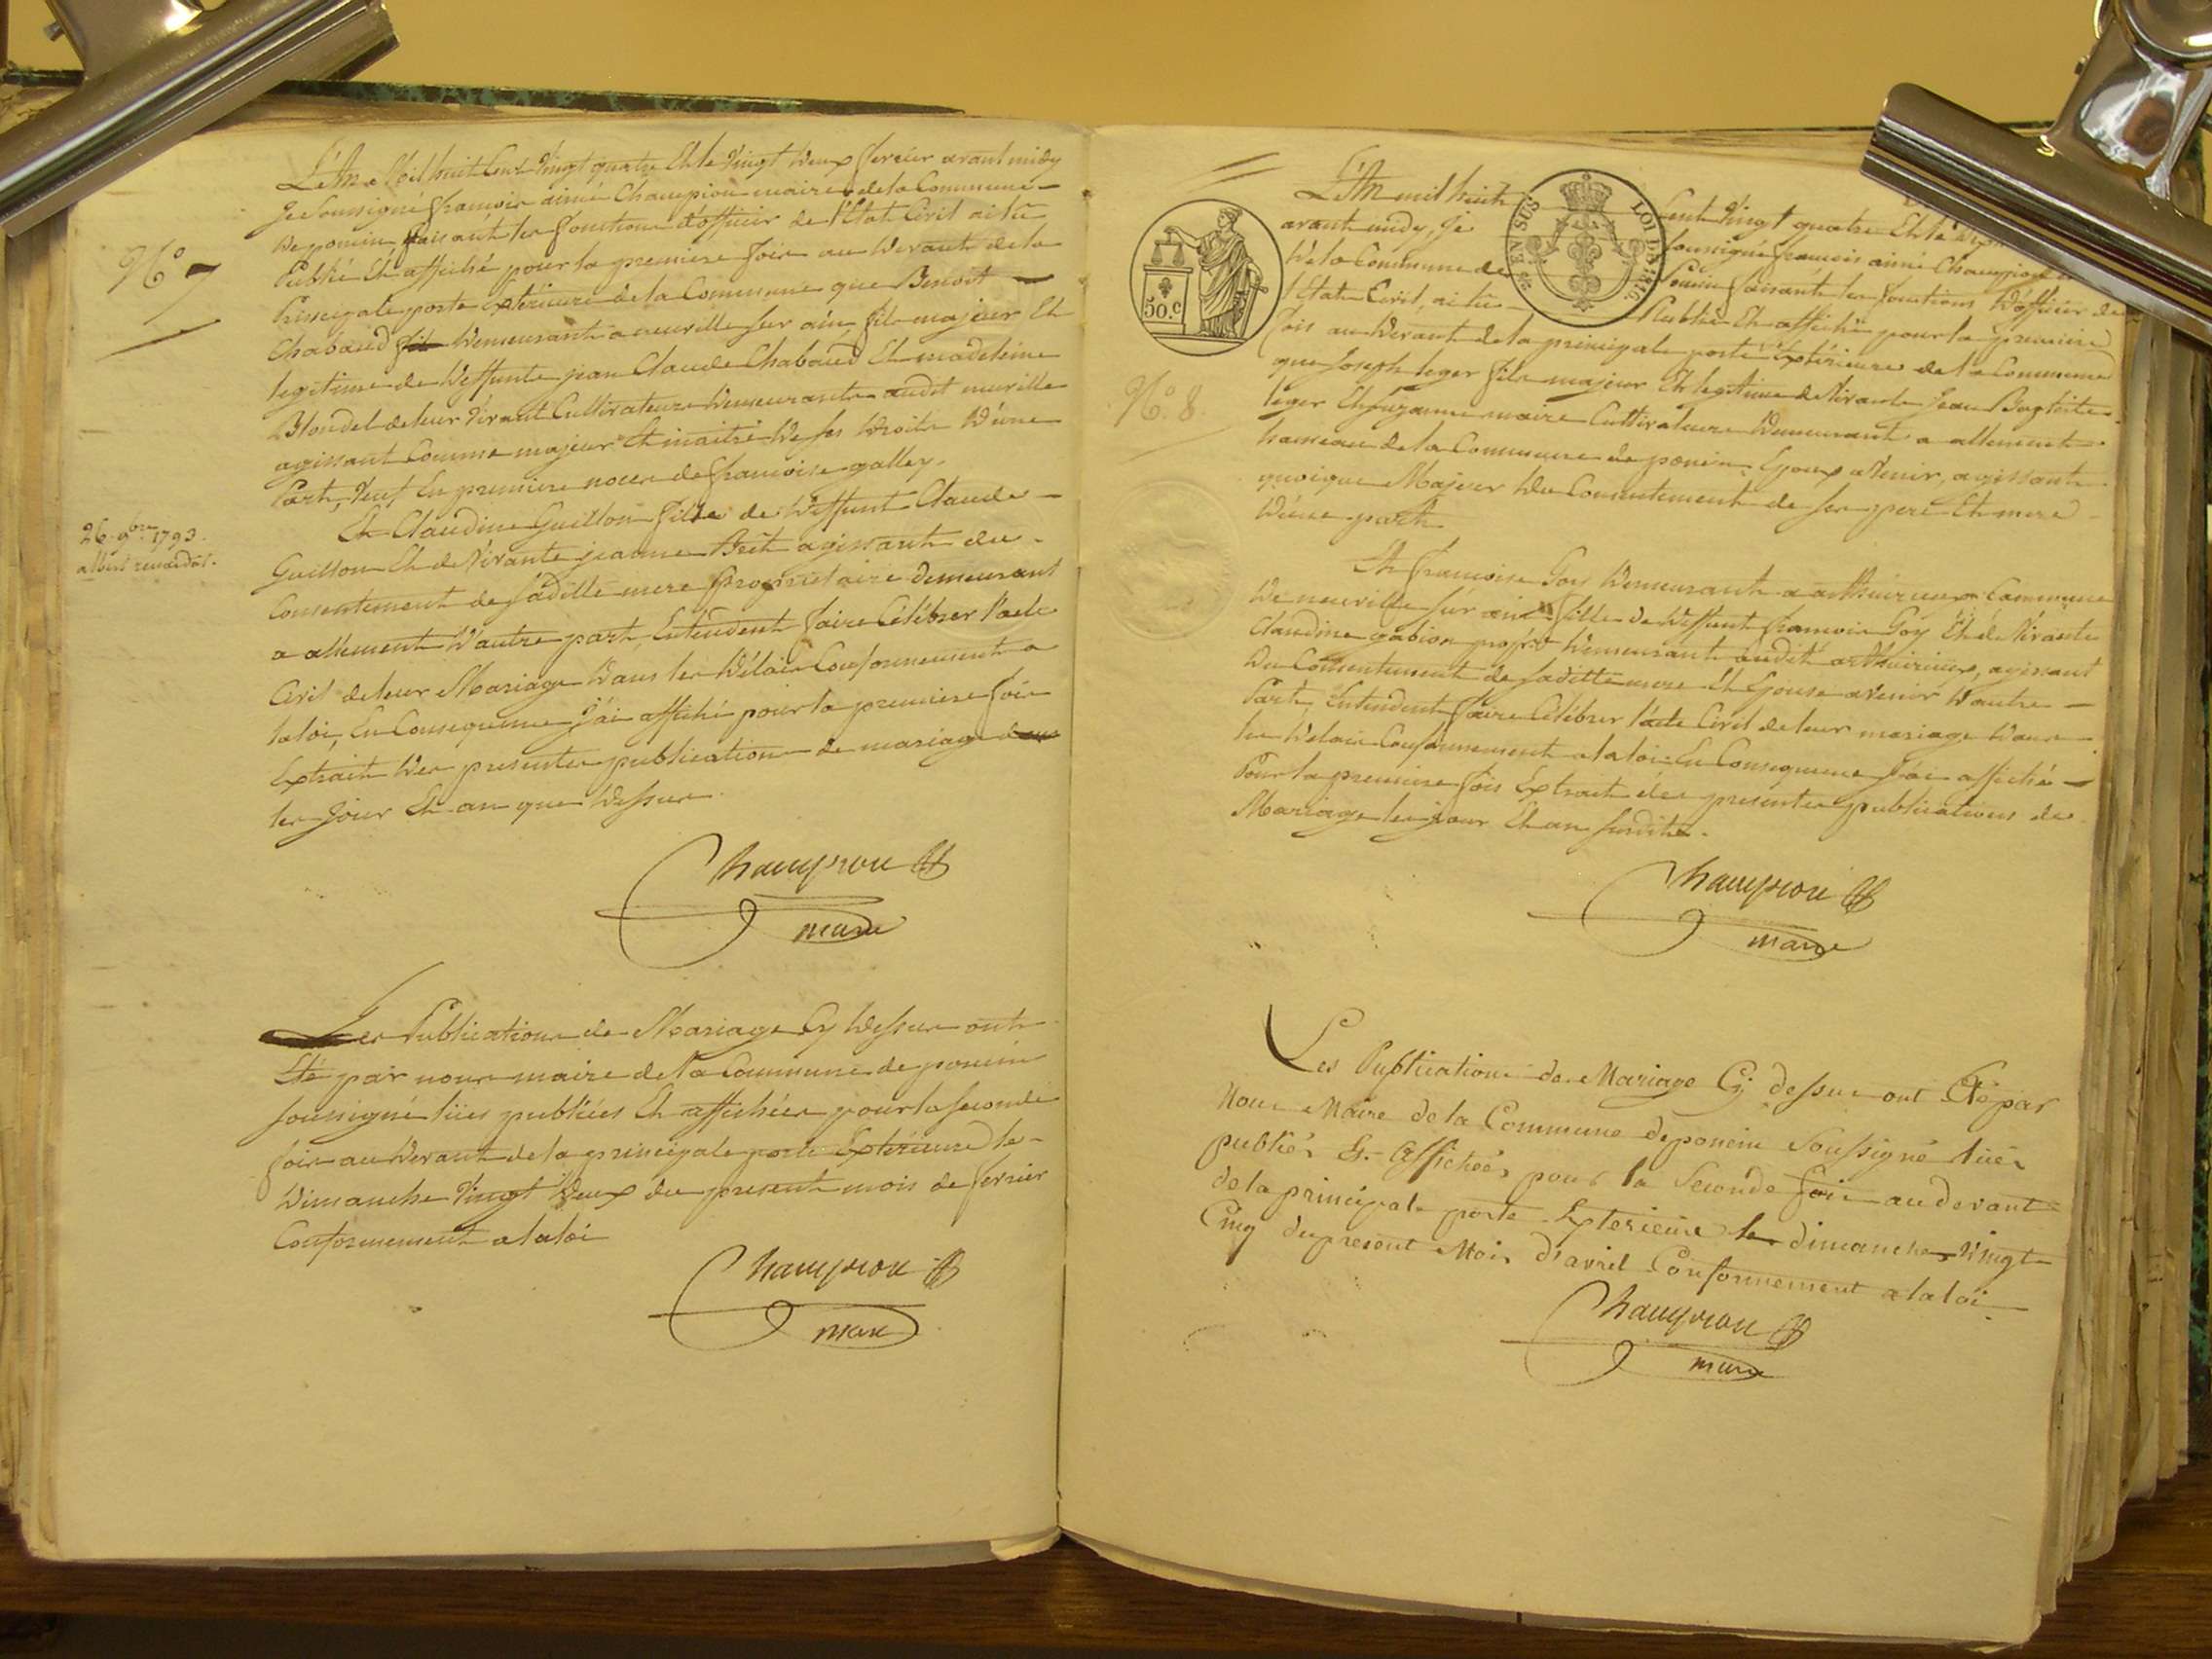 L'An Mil huit Cent Vingt quatre Et le Vingt Deux fevrier avant midy
Je Soussigné françois aimé Champion maire de la Commune
De poncin, faisant les fonctions d'officier de l'Etat Civil ai lû
Publié Et affiché pour la premiere fois au Devant de la
Principale porte Extérieure de la Commune que Benoit
Chabaud fils Demeurant a neuville sur ain, fils majeur Et
legitime de Deffunts jean Claude Chabaud Et madeleine
Blondel de leur Vivant Cultivateurs Demeurants audit neuville
agissant Comme majeur Et maitre De ses Droits D'une
Part, Veuf En premiere noces de françoise galley.
Et Claudine Guillon fille de Deffunt Claude
Guillon Et de Vivante jeanne agissant du
Consentement de sa ditte mere proprietaire demeurant
a allement D'autre part, Entendent faire Célébrer l'acte
Civil de leur Mariage Dans les Délais Conformement a
la loi, En Consequence J'ai affiché pour la premiere fois
Extrait Des presentes publications de mariage
les Jour Et an que Dessus.
N° 7
26 9bre 1793.
Champion
maire
Les Publications de Mariage Cy Dessus ont
Eté par nous maire de la Commune de poncin
soussigné lües publiées Et affichées pour la seconde
fois au Devant de la principale porte Extérieure le
Dimanche Vingt Deux du present mois de fevrier
Conformement a la loi
Champion
maire
L'An mil huit Cent Vingt quatre Et le
avant midy, Je soussigné françois aimé Champion
De la Commune de Poncin faisant les fonctions D'officier de
l'Etat Civil, ai lû Publié Et affiché pour la premiere
fois au Devant de la principale porte Extérieure de la Commune
que Joseph leger fils majeur Et legitime de Vivants Jean Baptiste
leger Et Suzanne maire Cultivateurs Demeurant a allement
hameau de la Commune de poncin, Epoux a Venir, agissant
quoique Majeur Du Consentement de ses pere Et mere
D'une part
N° 8.
Et françoise Goy Demeurant a Commune
De neuville sur ain fille de Deffunt françois Goy Et de Vivante
Claudine gabion Demeurant audit agissant
Du Consentement de sa ditte mere Et Epouse a venir D'autre
Part, Entendent faire Célébrer l'acte Civil de leur mariage Dans
les Délais Conformement a la loi En Consequence J'ai affiché
Pour la premiere fois Extrait des presentes publications de
Mariage les jour Et an susdits.
Champion
maire
Les Publications de Mariage Cy dessus ont Eté par
Nous Maire de la Commune de poncin Soussigné lües
publiés Et Affichées pour la Seconde fois au devant
de la principale porte Exterieure le dimanche Vingt
Cinq du present Mois d'avril Conformement a la loi
Champion
maire
50.C
EN SUS
LOI DE 1816.